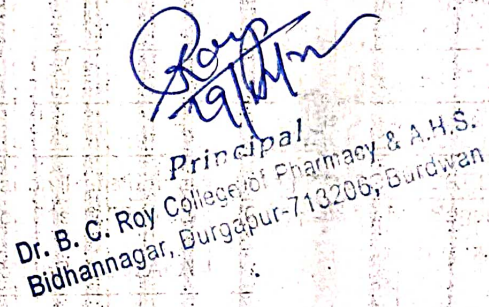 Principal
Dr. B. C. Roy College of Pharmacy & A.H.S.
Bidhannagar, Durgapur-713206, Burdwan